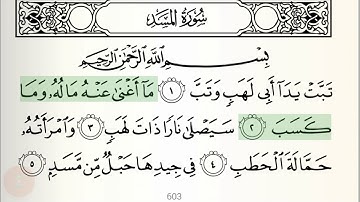 سُورَةُ المَسَدِ
بِسْمِ ٱللَّهِ ٱلرَّحْمَٰنِ ٱلرَّحِيمِ
تَبَّتْ يَدَآ أَبِى لَهَبٍ وَتَبَّ ١ مَآ أَغْنَىٰ عَنْهُ مَالُهُۥ وَمَا
كَسَبَ ٢ سَيَصْلَىٰ نَارًا ذَاتَ لَهَبٍ ٣ وَٱمْرَأَتُهُۥ
حَمَّالَةَ ٱلْحَطَبِ ٤ فِى جِيدِهَا حَبْلٌ مِّن مَّسَدٍۭ ٥
603